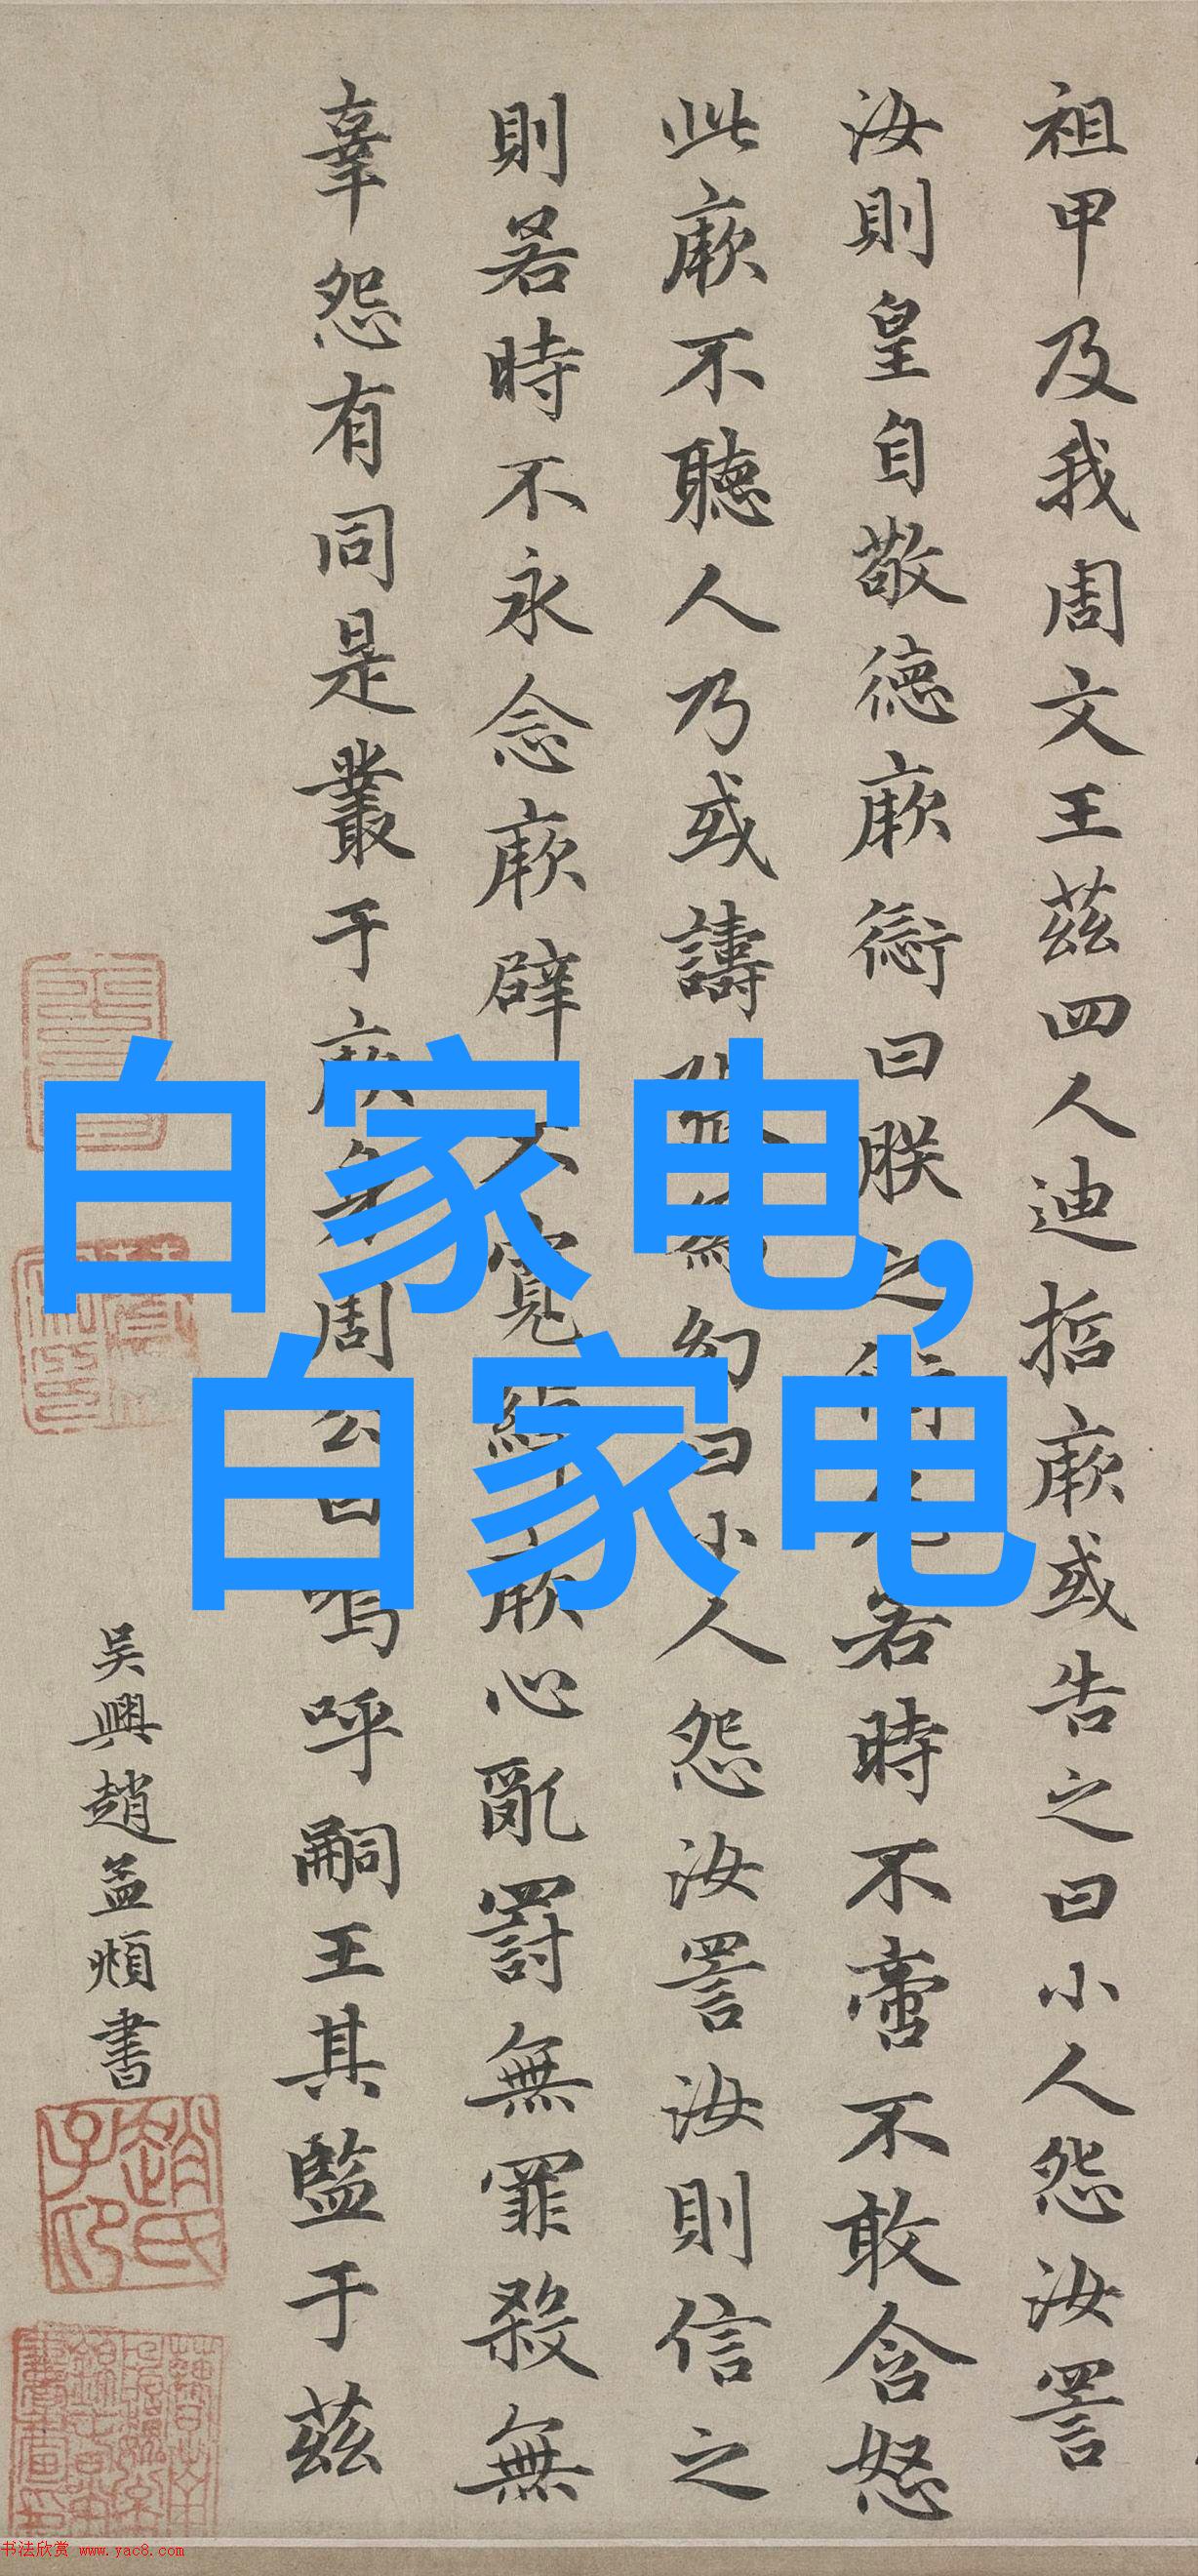 祖甲及我周文王茲四人迪哲厥或告之曰小人怨汝詈
汝則皇自敬德厥愆曰朕之愆允若時不啻不敢含怒
此厥不聽人乃或譸張為幻曰小人怨汝詈汝則信之
則若時不永念厥辟不寬綽厥心亂罰無罪殺無
辜怨有同是叢于厥身周公曰嗚呼嗣王其監于茲
吳興趙孟頫書
趙氏子昂
白家电,
白家电
书法欣赏 www.yac8.com